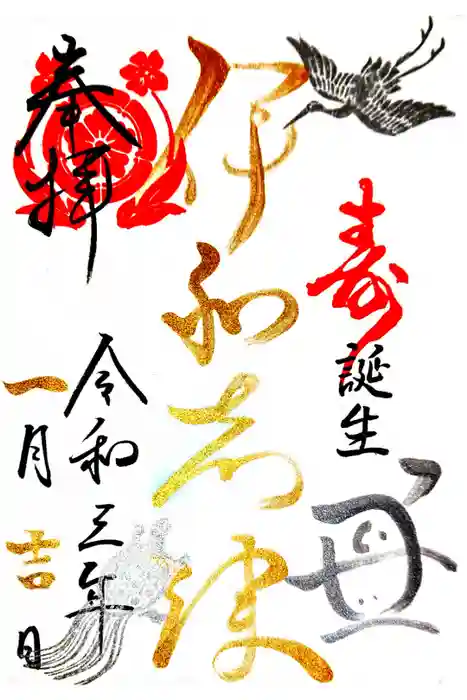 寿
誕生
丑
伊和志津
奉拝
令和三年
一月吉日